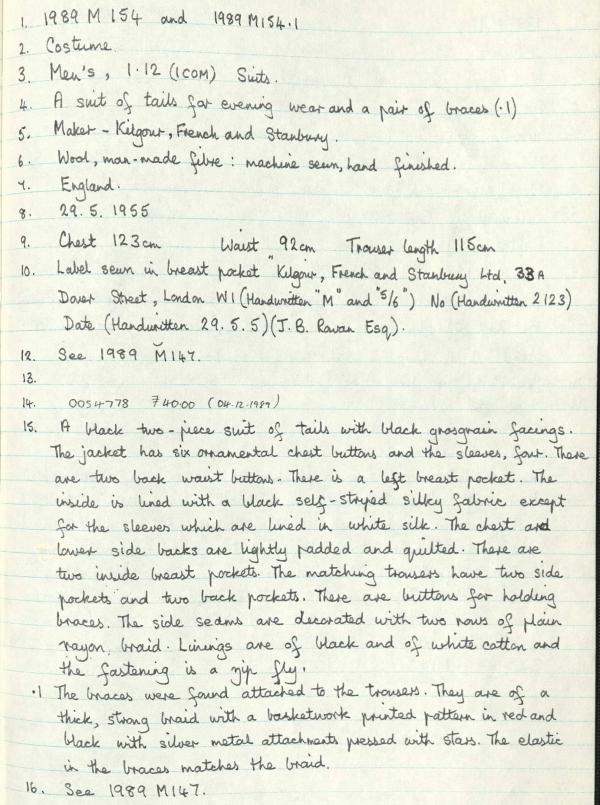 1. 1989 M 154 and 1989 M154.1
2. Costume.
3. Men's, 1.12 (ICOM) Suits.
4. A suit of tails for evening wear and a pair of braces (.1)
5. Maker - Kilgour, French and Stanbury.
6. Wool, man-made fibre : machine sewn, hand finished.
7. England.
8. 29. 5. 1955
9. Chest 123cm Waist 92cm Trouser length 115cm
10. Label sewn in breast pocket "Kilgour, French and Stanbury Ltd, 33A
Dover Street, London W1 (Handwritten "M" and "5/6") No (Handwritten 2123)
Date (Handwritten 29.5.5) (J.B. Ravan Esq).
12. See 1989 M147.
13.
14. 0054778 740.00 (04.12.1989)
15. A black two-piece suit of tails with black grosgrain facings.
The jacket has six ornamental chest buttons and the sleeves, four. There
are two back waist buttons. There is a left breast pocket. The
inside is lined with a black self-striped silky fabric except
for the sleeves which are lined in white silk. The chest and
lower side backs are lightly padded and quilted. There are
two inside breast pockets. The matching trousers have two side
pockets and two back pockets. There are buttons for holding
braces. The side seams are decorated with two rows of plain
rayon, braid. Linings are of black and of white cotton and
the fastening is a zip fly.
.1 The braces were found attached to the trousers. They are of a
thick, strong braid with a basketwork printed pattern in red and
black with silver metal attachments pressed with stars. The elastic
in the braces matches the braid.
16. See 1989 M147.